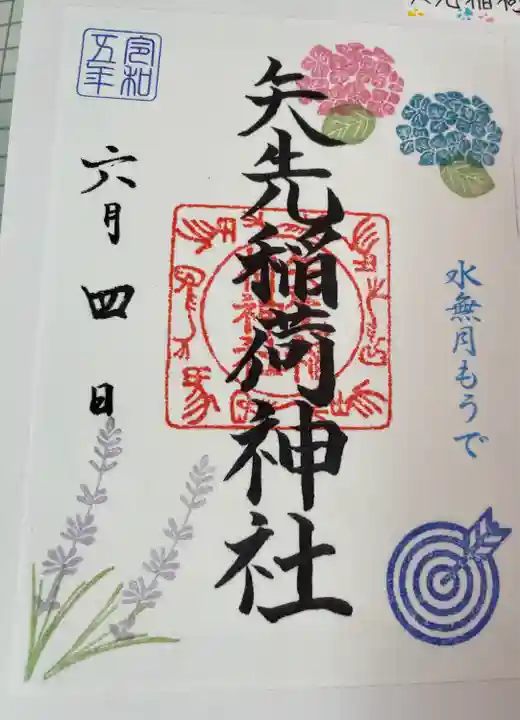 水無月もうで
矢先稲荷神社
令和
五年
六月四日